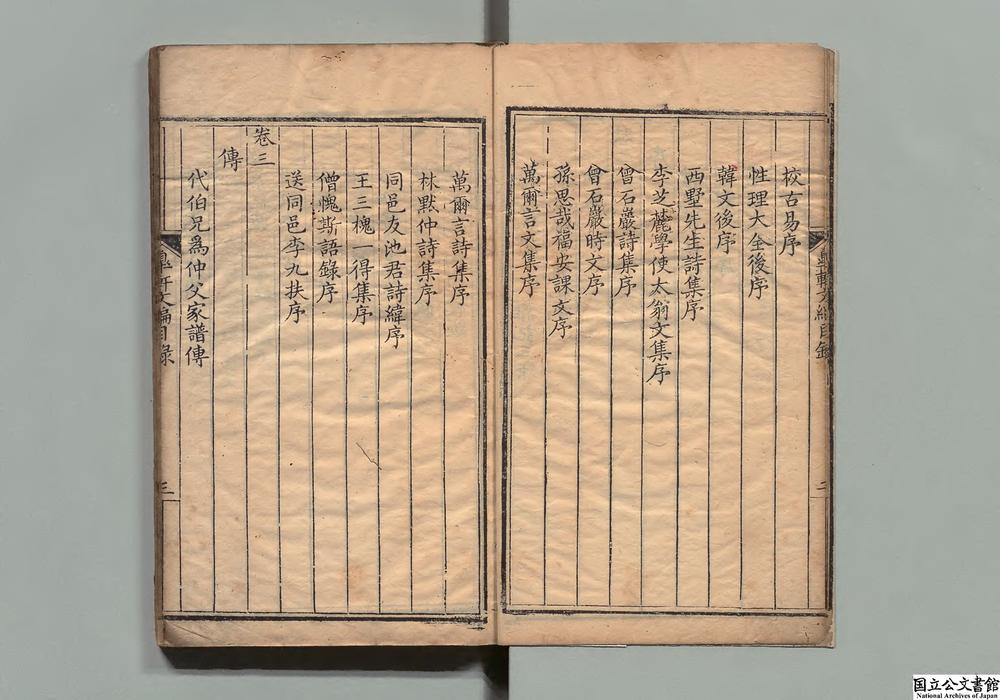 校古易序
性理大全後序
韓文後序
西墅先生詩集序
李芝麓學使太翁文集序
曾石巖詩集序
曾石巖時文序
孫思哉福安課文序
萬爾言文集序
萬爾言詩集序
林黙仲詩集序
同邑友池君詩緯序
王三槐一得集序
僧愧斯語錄序
送同邑李九扶序
卷三
傳
代伯兄爲仲父家譜傳
文編目録
三
国立公文書館
National Archives of Japan